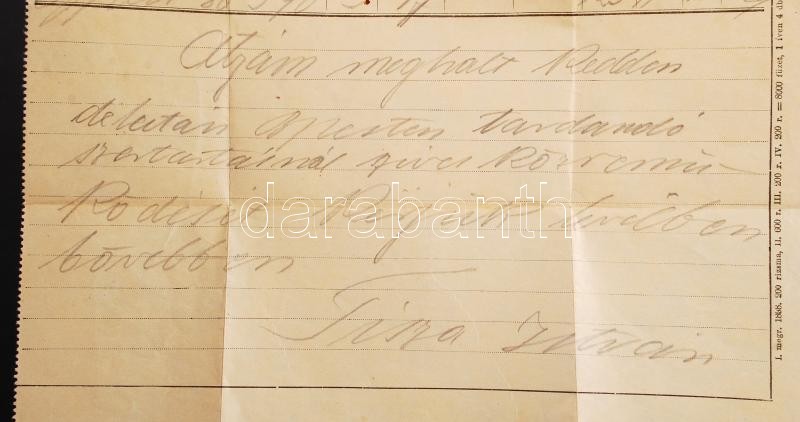 Atyám meghalt Kedden
délután Apesten tartandó
szertartásnál szives közremű-
ködését kérjük levélben
bővebben
Tisza István
darabanth
1. megr. 1898. 200 rizsma, II. 600 r. III. 200 r. IV. 200 r. = 8000 füzet, 1 iven 4 db